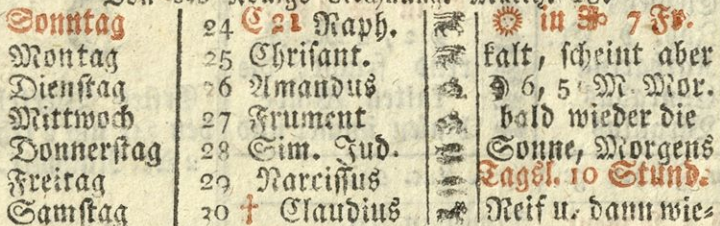 Sonntag 24 C 21 Raph. in 7 Fr.
Montag 25 Chrisant. kalt, scheint aber
Dienstag 26 Amandus 6, 5 M. Mor.
Mittwoch 27 Frument bald wieder die
Donnerstag 28 Sim. Jud. Sonne, Morgens
Freitag 29 Narcissus Tagsl. 10 Stund.
Samstag 30 † Claudius Reif u. dann wie⸗